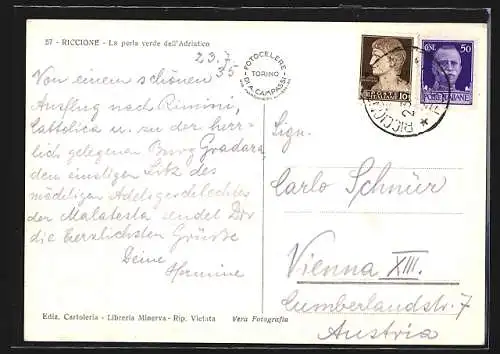 57 - RICCIONE - La perla verde dell'Adriatico
23.7.
35
Von einem schönen
Ausflug nach Rimini,
Cattolica u. zu der herr-
lich gelegenen Burg Gradara,
dem einstigen Sitz des
mächtigen Adelsgeschlechtes
der Malatesta sendet Dir
die herzlichsten Grüße
Deine
Hermine
Ediz. Cartoleria - Libreria Minerva - Rip. Vietata
Vera Fotografia
FOTOCELERE
TORINO
DI A. CAMPASSI
10
CENT. 50
POSTE ITALIANE
RICCIONE
Sign.
Carlo Schnürr
Vienna XIII.
Cumberlandstr. 7
Austria